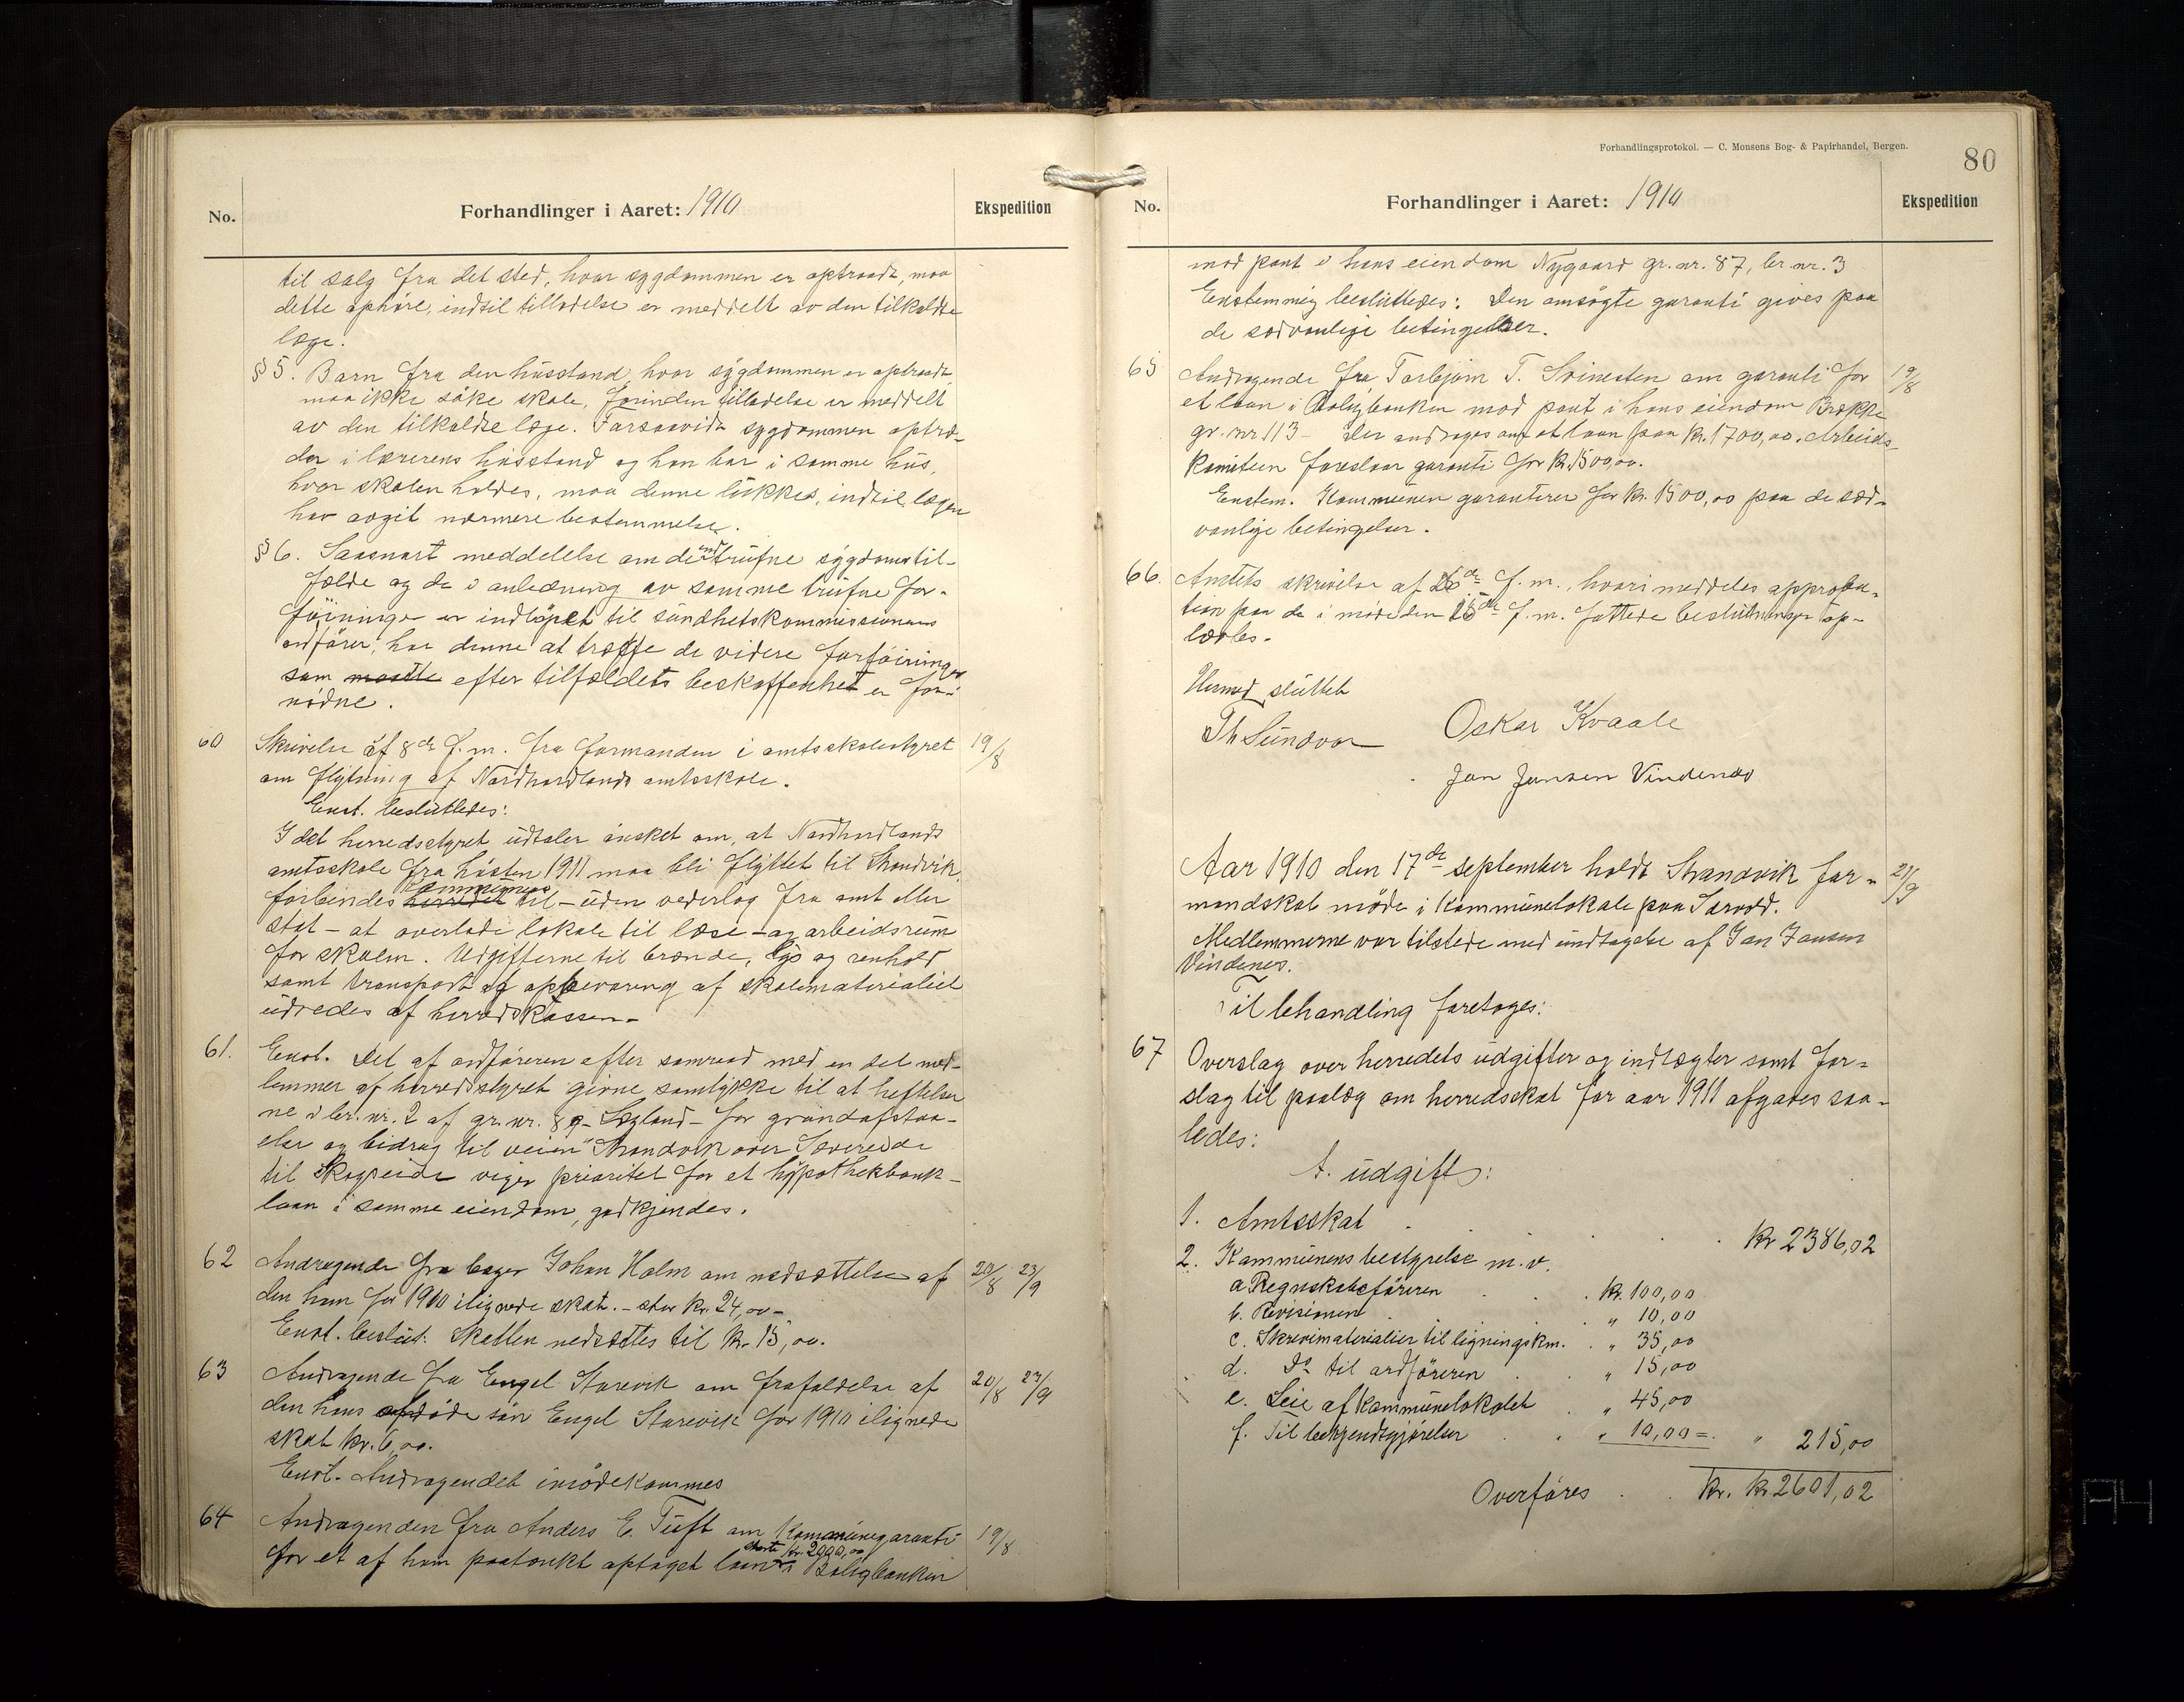 No.
Forhandlinger i Aaret: 1910
Ekspedition
til salg fra det sted, hvor sygdommen er optraadt, maa
dette ophøre, indtil tilladelse er meddelt av den tilkaldte
læge.
§ 5. Barn fra den husstand, hvor sygdommen er optraadt
maa ikke søke skole, forinden tilladelse er meddelt
av den tilkaldte læge. Forsaavidt sygdommen optræ-
der i lærerens husstand og han bor i samme hus,
hvor skolen holdes, maa denne lukkes, indtil lægen
har avgit nærmere bestemmelse.
§ 6. Saasnart meddelelse om de indtrufne sygdomstil-
fælde og de i anledning av samme trufne for-
føininger er indløpet til sundhetskommissionens
ordfører, har denne at træffe de videre forføininger
som maatte efter tilfældets beskaffenhet er for-
nødne.
60 Skrivelse af 8de f. m. fra formanden i amtsskolestyret 19/8
om flytning af Nordhordlands amtsskole.
Enst. besluttedes:
I det herredsstyret udtaler ønsket om, at Nordhordlands
amtsskole fra høsten 1911 maa bli flyttet til Strandvik,
forbindes herredet kommunen til - uden vederlag fra amt eller
stat - at overlade lokale til læse- og arbeidsrum
for skolen. Udgifterne til brænde, lys og renhold
samt transport og opbevaring af skolemateriellet
udredes af herredskassen.
61. Enst. Det af ordføreren efter samraad med en del med-
lemmer af herredsstyret givne samtykke til at heftelser
ne i br. nr. 2 af gr. nr. 89 - Lygland - for grundafstaa-
else og bidrag til veien Strandvik over Sævereide
til Skogseide viger prioritet for et hypothekbank-
laan i samme eiendom, godkjendes.
62 Andragende fra bager Johan Holm om nedsættelse af 20/8 23/9
den ham for 1910 ilignede skat. - stor kr. 24,00 -
Enst. beslut. Skatten nedsættes til kr. 15,00.
63 Andragende fra Engel Starevik om frafaldelse af 20/8 23/9
den hans afdøde søn Engel Starevik for 1910 ilignede
skat kr. 6,00.
Enst. Andragendet imødekommes
64 Andragenden fra Anders E. Tuft om kommunegaranti 19/8
stort kr. 2000,00
for et af ham paatænkt optaget laan i Boligbanken
Forhandlingsprotokol. — C. Monsens Bog- & Papirhandel, Bergen.
80
No.
Forhandlinger i Aaret: 1910
Ekspedition
mod pant i hans eiendom Nygaard gr. nr. 87, br. nr. 3
Enstemmig besluttedes: Den ansøgte garanti gives paa
de sædvanlige betingelser.
65 Andragende fra Torbjørn T. Svinesten om garanti for 19/8
et laan i Boligbanken mod pant i hans eiendom Brekke
gr. nr. 113 - Der andrages om et laan paa kr. 1700,00. Arbeids-
komiteen foreslaar garanti for kr. 1500,00.
Enstem. Kommunen garanterer for kr. 1500,00 paa de sæd-
vanlige betingelser.
66. Amtets skrivelse af 26de f. m., hvori meddeles approba-
tion paa de i møde den 15de f. m. fattede beslutninger op-
læstes.
Hermed sluttet
Th Sundvor Oskar Kvaale
Jan Jansen Vindenes
Aar 1910 den 17de september holdt Strandvik for- 21/9
mandskab møde i kommunelokale paa Sævold.
Medlemmerne var tilstede med undtagelse af Jan Jansen
Vindenes.
Til behandling foretoges:
67 Overslag over herredets udgifter og indtægter samt for-
slag til paalæg om herredsskat for aar 1911 afgaves saa-
ledes:
A. udgift:
1. Amtsskat . . . . kr 2386,02
2. Kommunens bestyrelse m. v.
a Regnskabsføreren . . kr. 100,00
b. Revisionen . . " 10,00
c. Skrivimaterialier til ligningskm. . " 35,00
d. Do til ordføreren . . " 15,00
e. Leie af kommunelokalet . " 45,00
f. Til bekjendtgjørelser . . " 10,00 = . " 215,00
Overføres . . kr. kr 2601,02